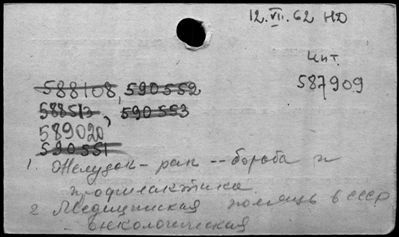 12.VII.62 НО
Чит.
587909
588108, 590552
588513, 590553
589020,
590551
1. Желудок - рак -- борьба и
профилактика
2 Медицинская помощь в СССР
- онкологическая